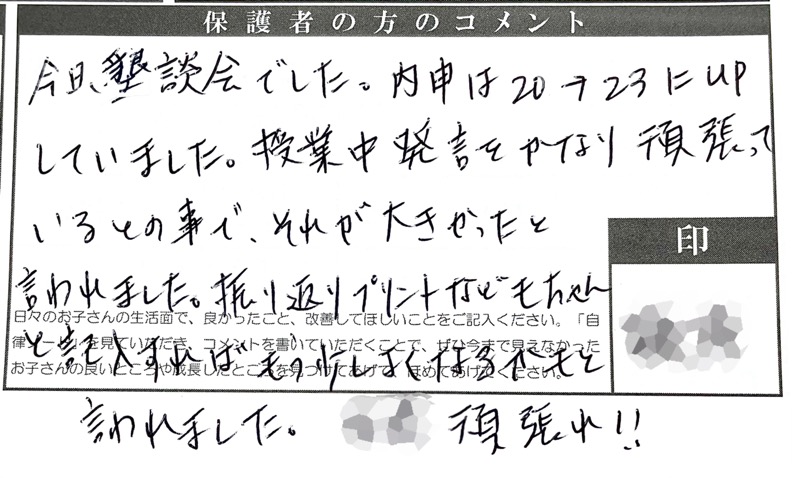 保護者の方のコメント
今日、懇談会でした。内申は20→23にUP
していました。授業中発言をかなり頑張って
いるとの事で、それが大きかったと
言われました。振り返りプリントなどもちゃん
と記入すればもう少しよくなるかもと
言われました。
頑張れ!!
印
日々のお子さんの生活面で、良かったこと、改善してほしいことをご記入ください。「自
律ノート」を見ていただき、コメントを書いていただくことで、ぜひ今まで見えなかった
お子さんの良いところや成長したところを見つけてあげて、ほめてあげてください。